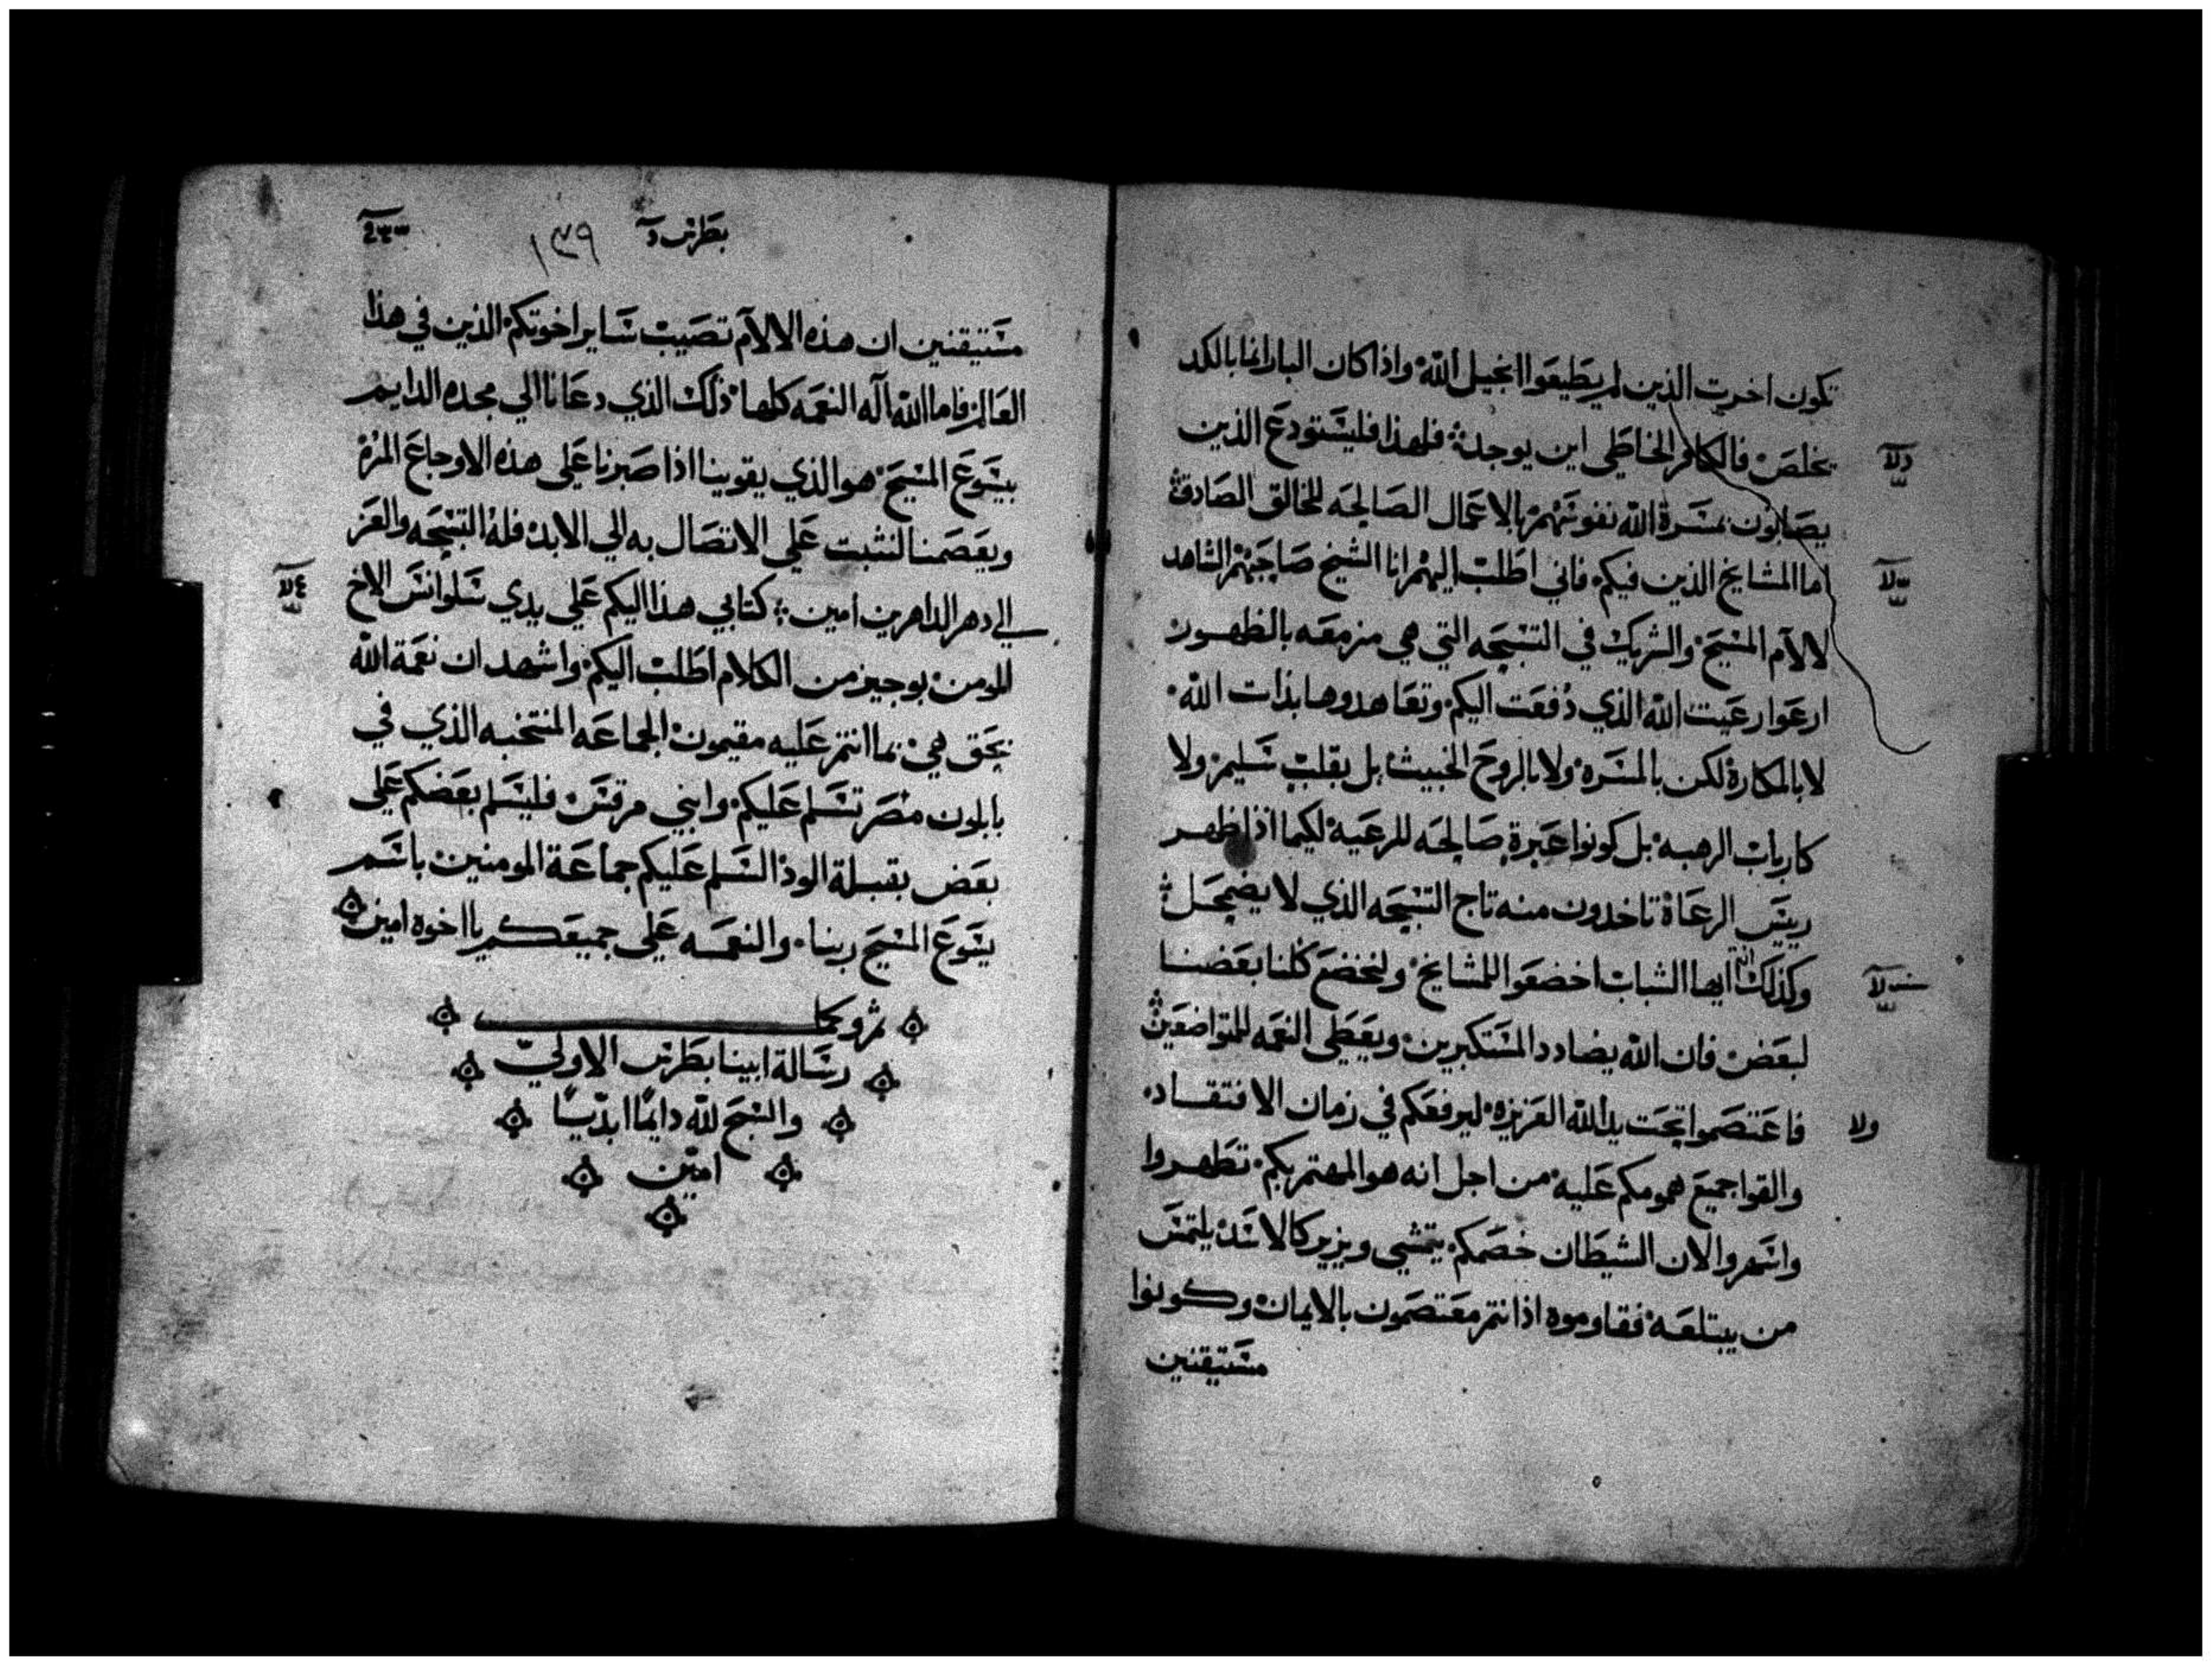 تكون اخرت الذين لم يطيعوا انجيل الله واذا كان البار انما بالكد
يخلص فالكافر الخاطي اين يوجد فلهذا فليستودع الذين
يصابون بمسرة الله نفوسهم بالاعمال الصالحه للخالق الصادق
اما المشايخ الذين فيكم فاني اطلب اليهم انا الشيخ صاحبهم الشاهد
لالام المسيح والشريك في التسبحه التي هي مزمعه بالظهور
ارعوا رعيت الله الذي دفعت اليكم وتعاهدوها بذات الله
لا بالمكاره لكن بالمسره ولا بالروح الخبيث بل بقلب سليم ولا
كارباب الرهبه بل كونوا عبرة صالحه للرعية لكيما اذا ظهر
رييس الرعاة تاخدون منه تاج التسبحه الذي لا يضمحل
وكذلك انتم ايها الشباب اخضعوا للمشايخ ولنخضع كلنا بعضنا
لبعض فان الله يضادد المستكبرين ويعطي النعمه للمتواضعين
فاعتصموا تحت يد الله العزيزه ليرفعكم في زمان الافتقاد
والقوا جميع همومكم عليه من اجل انه هو المهتم بكم تطهروا
واسهروا لان الشيطان خصمكم يتمشي ويزير كالاسد يلتمس
من يبتلعه فقاوموه اذ انتم معتصمون بالايمان وكونوا
مستيقنين
دلا
سلا
ولا
بطرس د
١٣٩
مستيقنين ان هذه الالام تصيب ساير اخوتكم الذين في هذا
العالم فاما الله اله النعمه كلها ذلك الذي دعانا الي مجده الدايم
بيسوع المسيح هو الذي يقوينا اذا صبرنا علي هذه الاوجاع المرة
ويعصمنا لنثبت علي الاتصال به الي الابد فله التسبحه والعز
الي دهر الداهرين امين كتابي هذا اليكم علي يدي سلوانس الاخ
المومن بوجيز من الكلام اطلب اليكم واشهد ان نعمة الله
بحق هي بما انتم عليه مقيمون الجماعه المنتخبه الذي في
بابلون مصر تسلم عليكم وابني مرقس فليسلم بعضكم علي
بعض بقبلة الود السلم عليكم جماعة المومنين باسم
يسوع المسيح ربنا والنعمه علي جميعكم يا اخوه امين
تم وكمل
رسالة ابينا بطرس الاولي
والسبح لله دايمًا ابديًا
امين